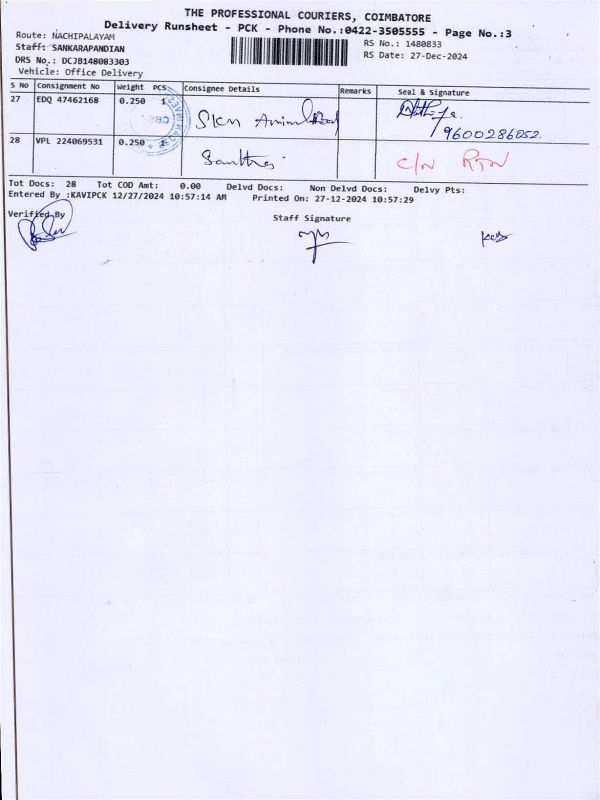 THE PROFESSIONAL COURIERS, COIMBATORE
Delivery Runsheet - PCK - Phone No.:0422-3505555 - Page No.:3
Route: NACHIPALAYAM
RS No.: 1480833
Staff: SANKARAPANDIAN
RS Date: 27-Dec-2024
DRS No.: DCJB148083303
Vehicle: Office Delivery
S No Consignment No Weight PCS Consignee Details Remarks Seal & Signature
27 EDQ 47462168 0.250 1 SKM Animal
9600286852.
28 VPL 224069531 0.250 C/N RTN
Tot Docs: 28 Tot COD Amt: 0.00 Delvd Docs: Non Delvd Docs: Delvy Pts:
Entered By :KAVIPCK 12/27/2024 10:57:14 AM Printed On: 27-12-2024 10:57:29
Verified By
Staff Signature